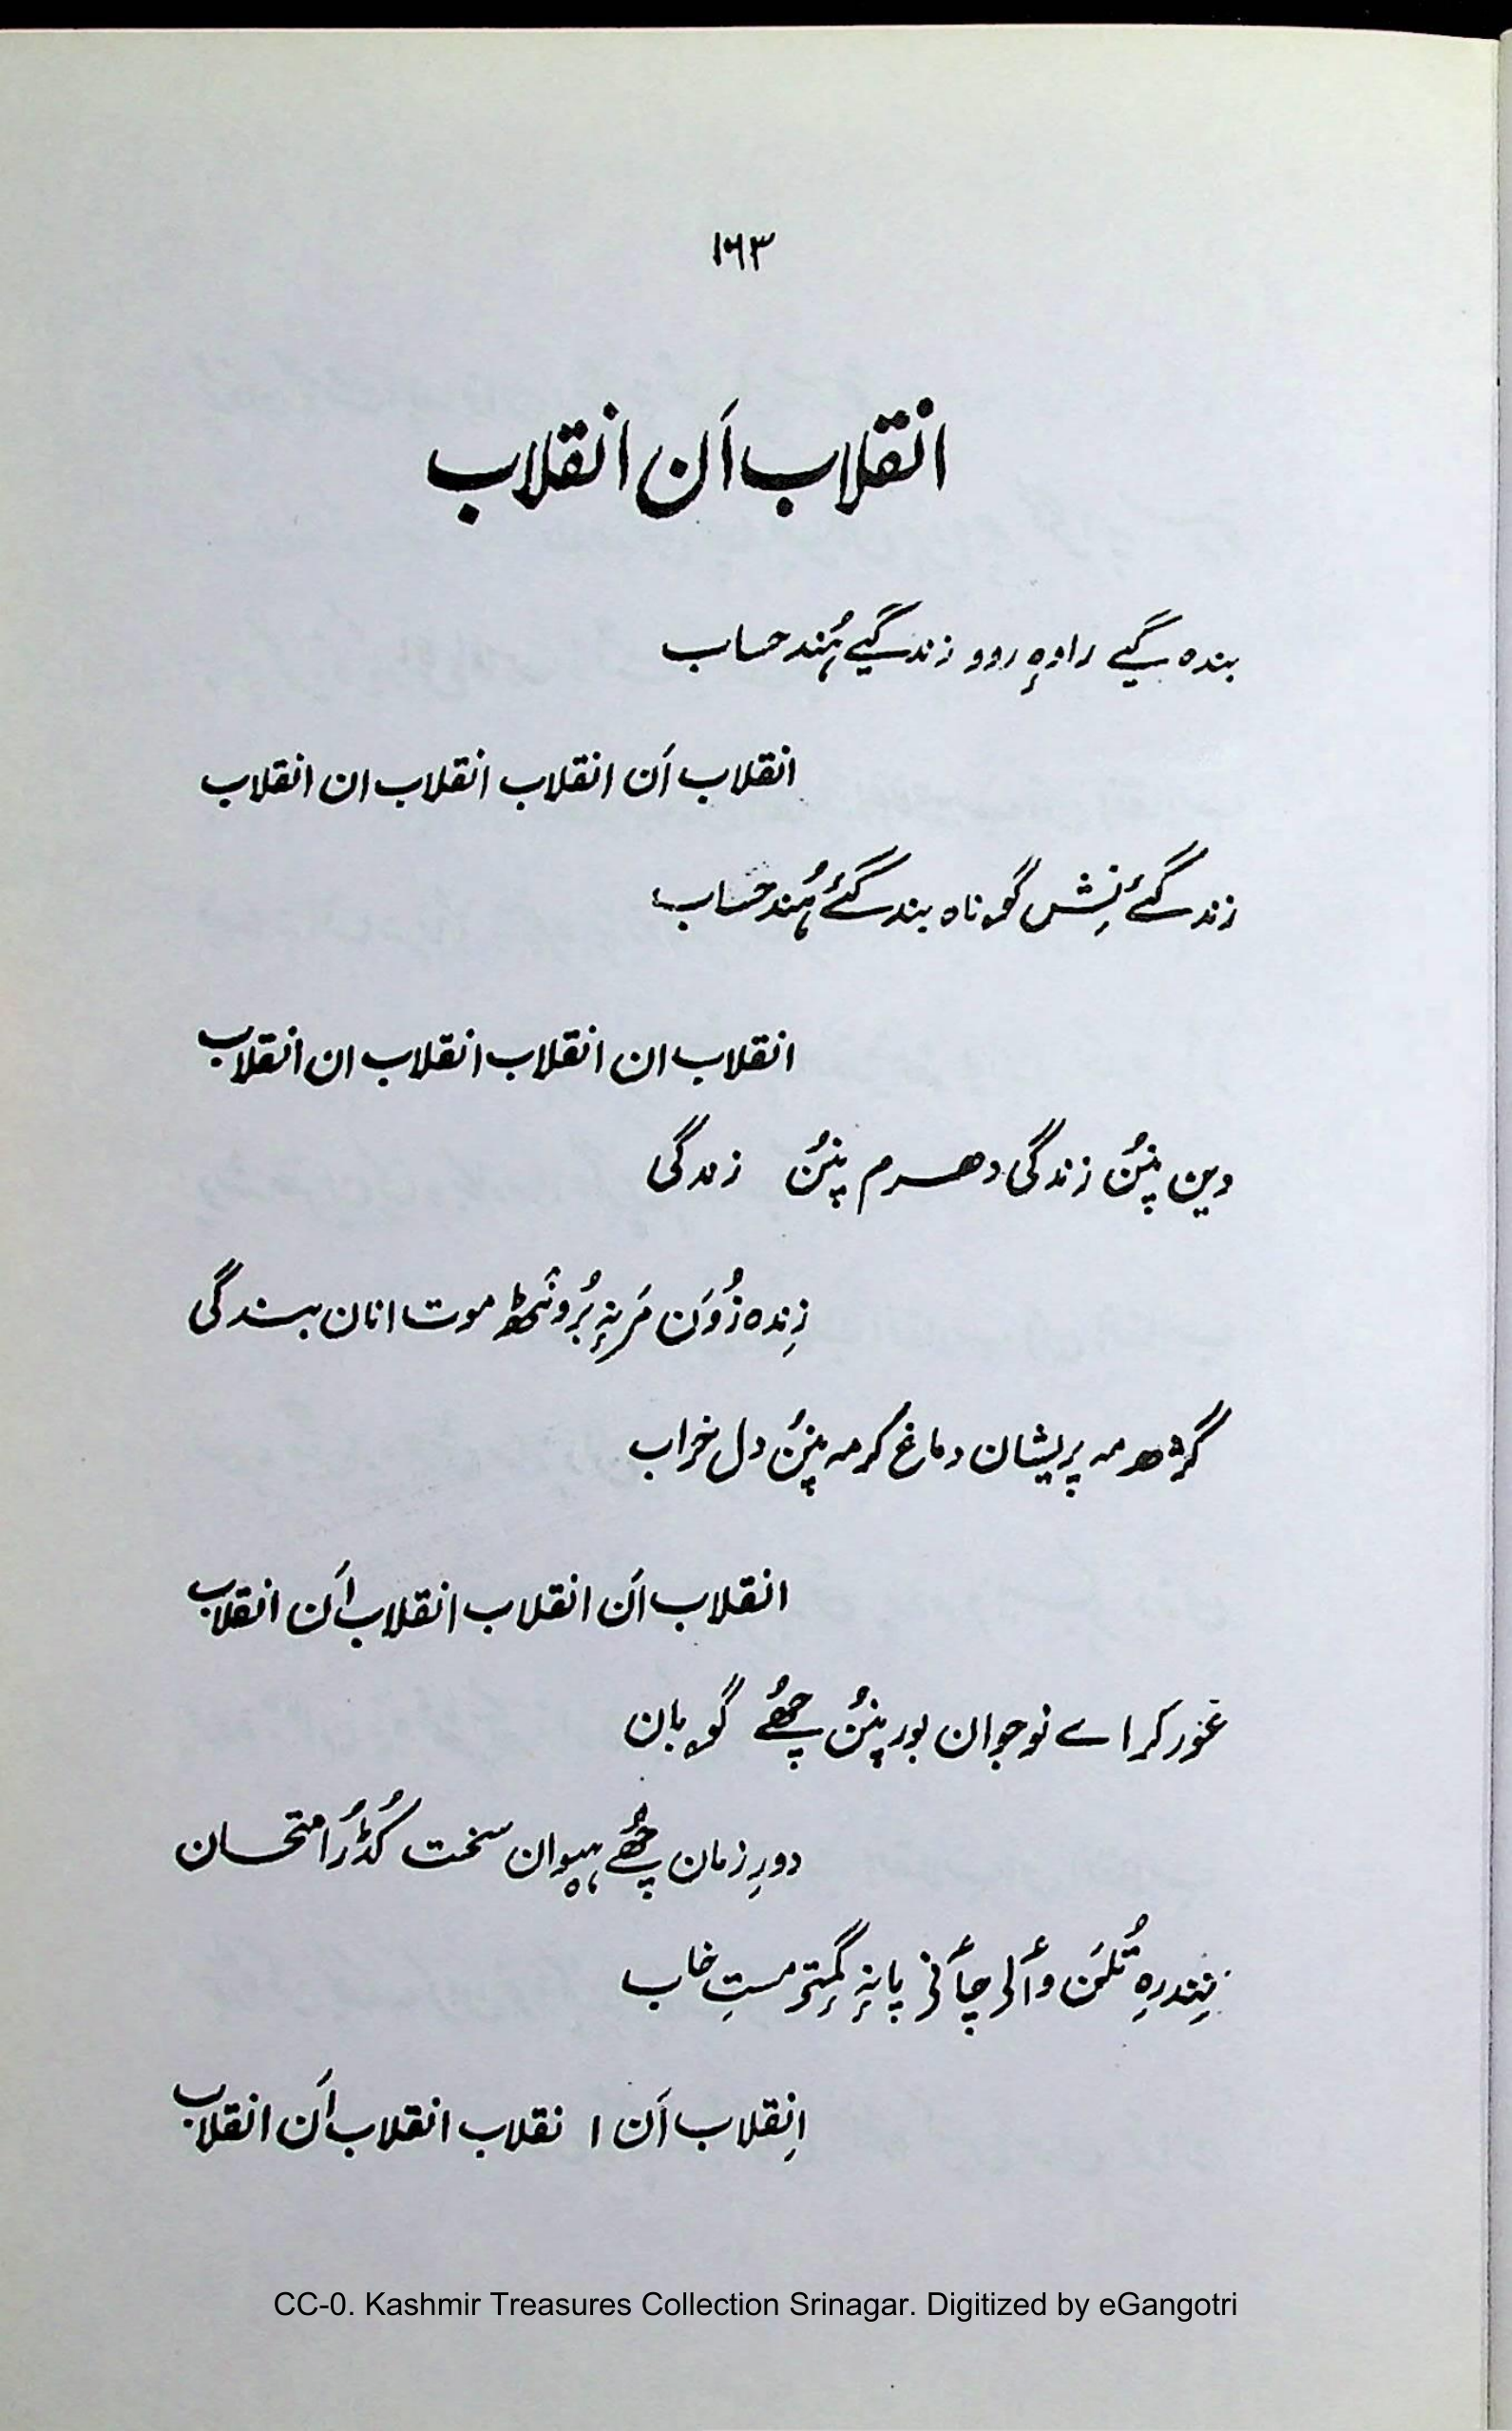 ۱۶۳
انقلاب اَن انقلاب
بندہ گیے راوہِ روو زندگیے ہُند حساب
انقلاب اَن انقلاب انقلاب ان انقلاب
زندگئے نِش گوناہ بندگئے ہُند حساب
انقلاب ان انقلاب انقلاب ان انقلاب
دین پنٕنُ زندگی دھرم پنٕنُ زندگی
زِندہ زُوَن مَرنہٕ بُرونٛٹھ موت انان بندگی
گژھ مہ پریشان دماغ کر مہ پنٕنُ دل خراب
انقلاب اَن انقلاب انقلاب اَن انقلاب
غور کر اے نوجوان بور پنٕنُ چھُے گوبان
دورِ زمان چھُے ہیوان سخت کُڈُر امتحان
نِندرہِ تُلمَن وٲلی چٲنی پانہٕ گمٕتۍ مستِ خاب
اِنقلاب اَن انقلاب انقلاب اَن انقلاب
CC-0. Kashmir Treasures Collection Srinagar. Digitized by eGangotri